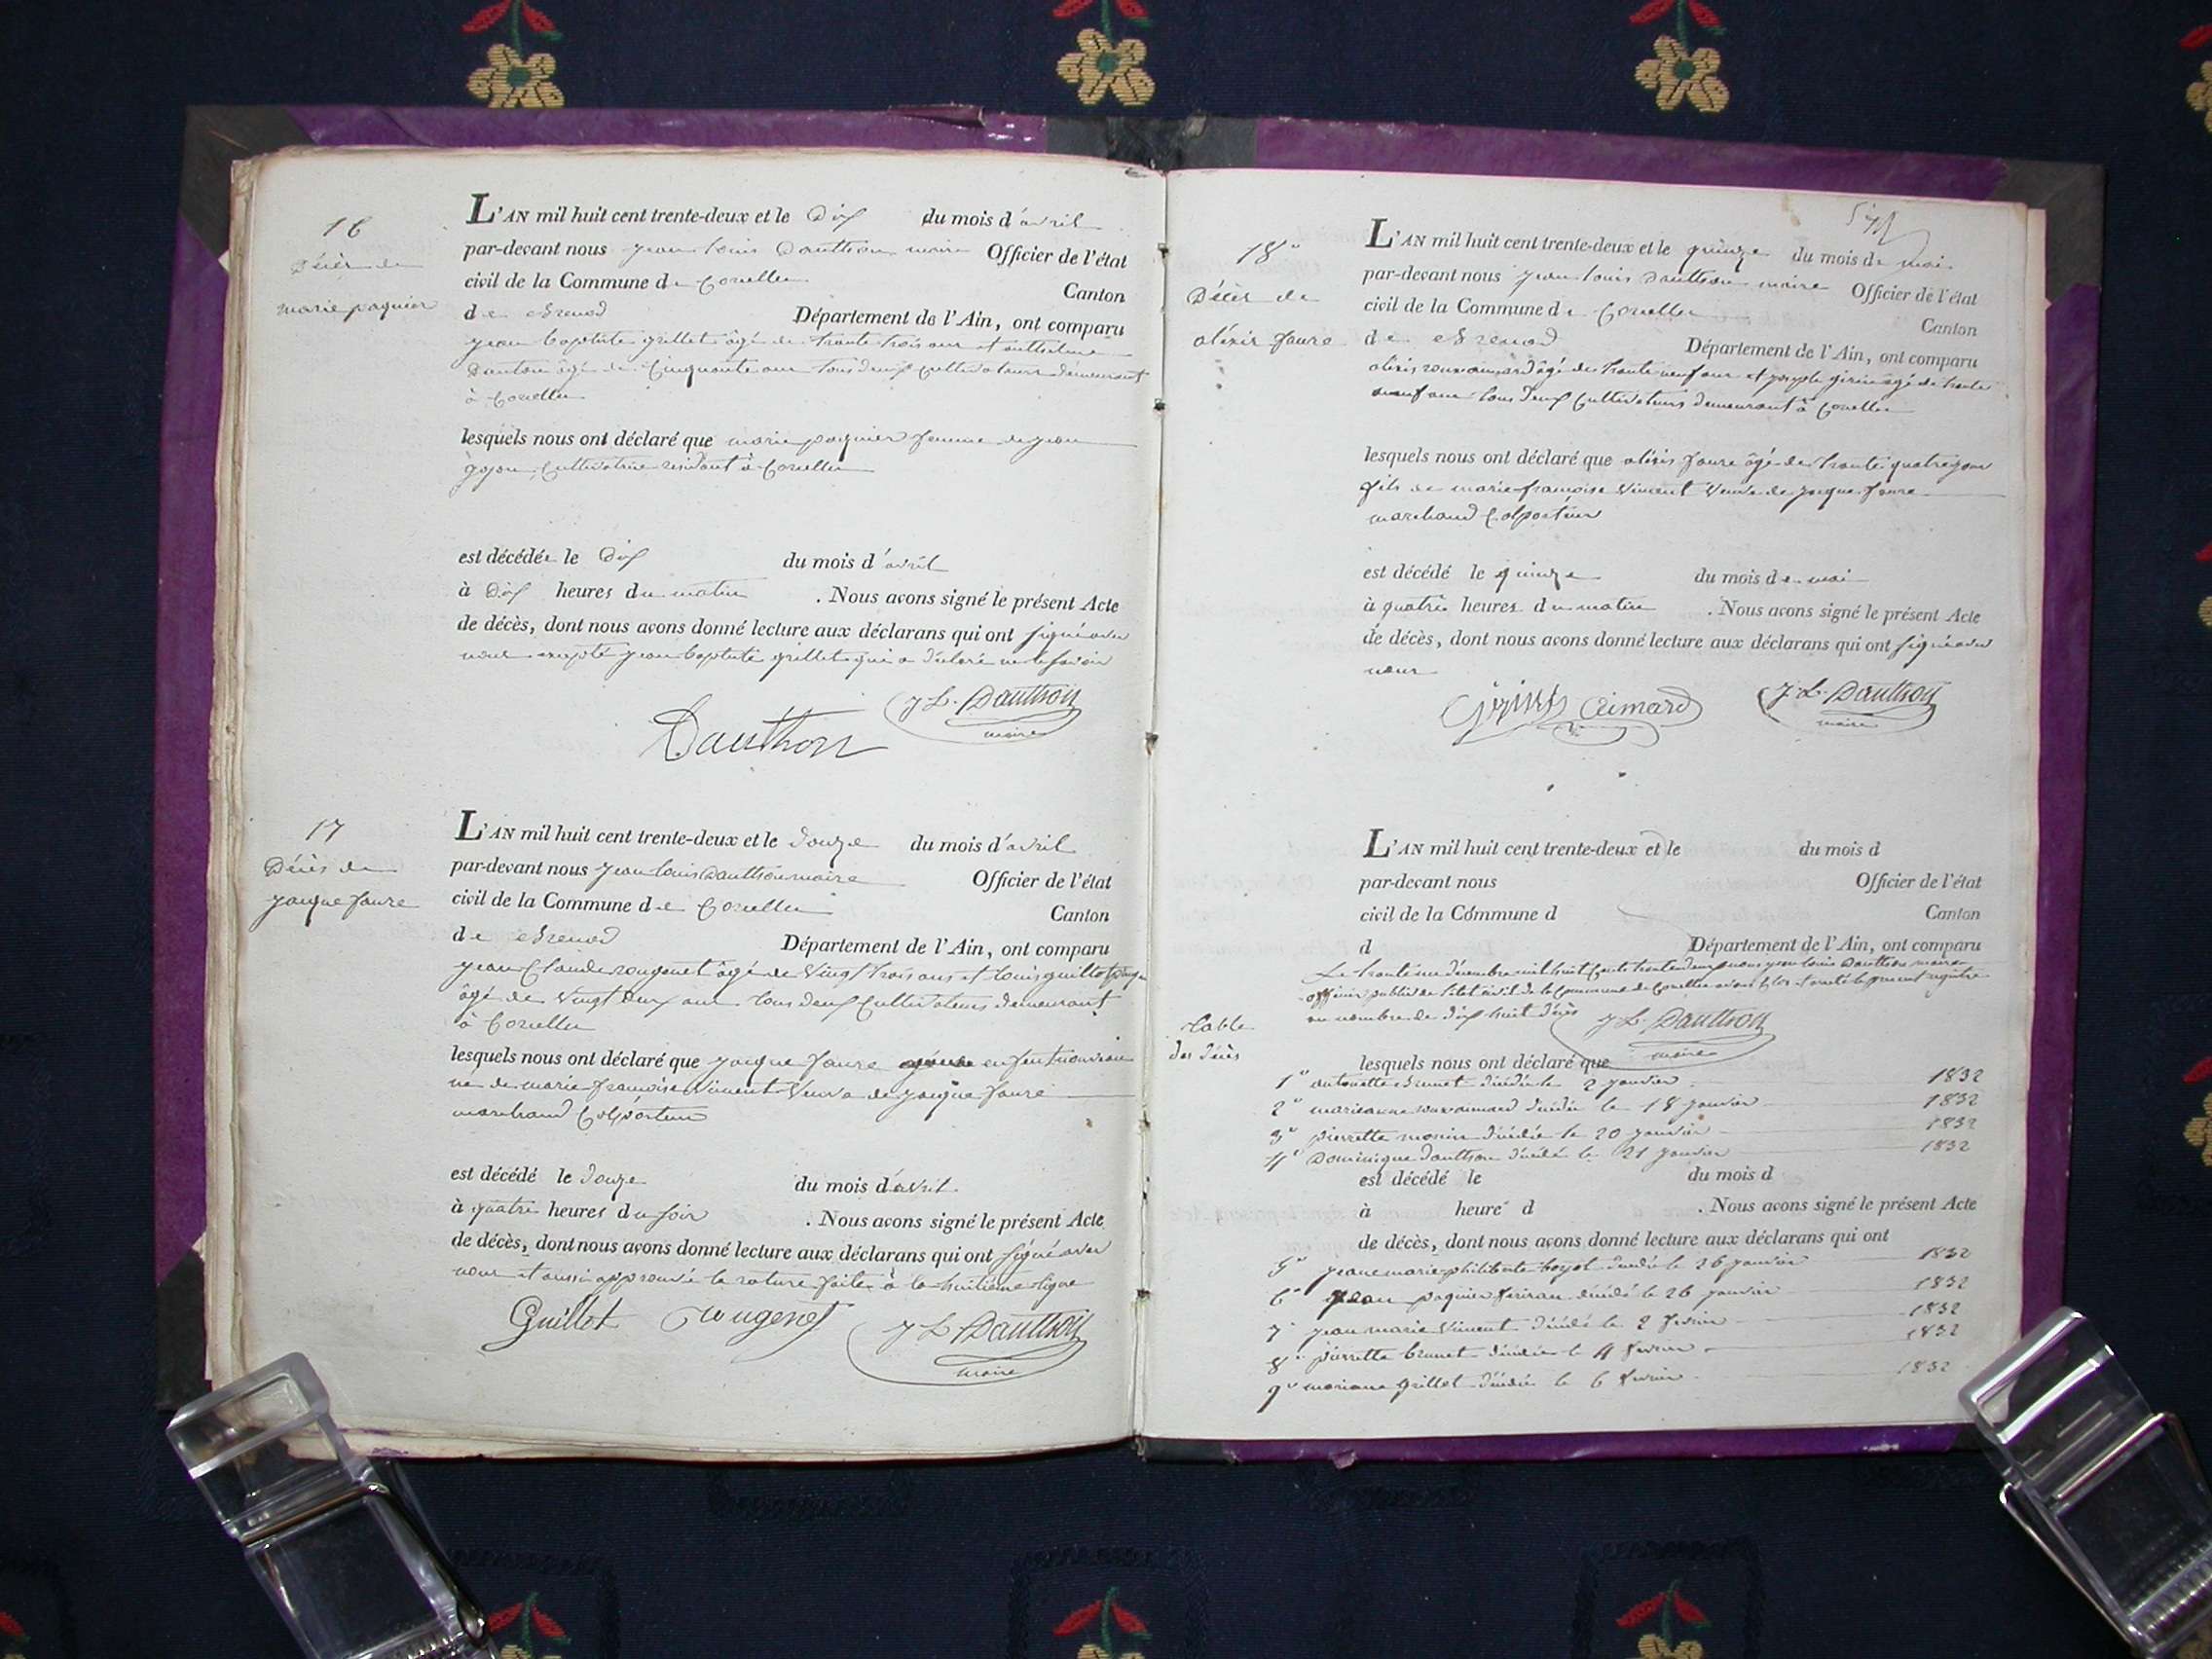 16
Décès de
marie paquier
L'AN mil huit cent trente-deux et le Dix du mois d'avril
par-devant nous jean louis Dauthon maire Officier de l'état
civil de la Commune de Corcelles
Canton
de Brenod Département de l'Ain, ont comparu
jean baptiste grillet âgé de trente trois ans et
Dauthon âgé de Cinquante ans tous deux Cultivateurs demeurant
à Corcelles
lesquels nous ont déclaré que marie paquier femme de jean
goyon Cultivatrice résidant à Corcelles
est décédée le Dix du mois d'avril
à Dix heures du matin . Nous avons signé le présent Acte
de décès, dont nous avons donné lecture aux déclarans qui ont signé avec
nous excepté jean baptiste grillet qui a déclaré ne le savoir
Dauthon J L. Dauthon
maire
17
Décès de
jacque faure
L'AN mil huit cent trente-deux et le douze du mois d'avril
par-devant nous jean louis Dauthon maire Officier de l'état
civil de la Commune de Corcelles
Canton
de Brenod Département de l'Ain, ont comparu
jean Claude rougenet âgé de vingt trois ans et louis guillot
âgé de vingt deux ans tous deux Cultivateurs demeurant
à Corcelles
lesquels nous ont déclaré que jacque faure enfant nouveau
né de marie françoise vincent veuve de jacque faure
marchand Colporteur
est décédé le douze du mois d'avril
à quatre heures du soir . Nous avons signé le présent Acte
de décès, dont nous avons donné lecture aux déclarans qui ont signé avec
nous et aussi approuvé la rature faite à la huitième ligne
Guillot rougenet J L. Dauthon
maire
18
Décès de
aléxis faure
L'AN mil huit cent trente-deux et le quinze du mois de mai
par-devant nous jean louis Dauthon maire Officier de l'état
civil de la Commune de Corcelles
Canton
de Brenod Département de l'Ain, ont comparu
aléxis âgé de trente neuf ans et âgé de trente
neuf ans tous deux Cultivateurs demeurant à Corcelles
lesquels nous ont déclaré que aléxis faure âgé de trente quatre jours
fils de marie françoise vincent veuve de jacque faure
marchand Colporteur
est décédé le quinze du mois de mai
à quatre heures du matin . Nous avons signé le présent Acte
de décès, dont nous avons donné lecture aux déclarans qui ont signé avec
nous
J L. Dauthon
maire
L'AN mil huit cent trente-deux et le du mois d
par-devant nous Officier de l'état
civil de la Commune d
Canton
d Département de l'Ain, ont comparu
Le trente un décembre mil huit Cent trente deux nous jean louis Dauthon maire
officier public de l'état civil de la Commune de Corcelles avons Clos et arrêté le présent registre
au nombre de dix huit décès J L. Dauthon
maire
Table
des décès
lesquels nous ont déclaré que
1° antoinette brunet décédée le 2 janvier 1832
2° marieanne décédée le 18 janvier 1832
3° pierrette monin décédée le 20 janvier 1832
4° Dominique Dauthon décédé le 21 janvier 1832
est décédé le du mois d
à heure d . Nous avons signé le présent Acte
de décès, dont nous avons donné lecture aux déclarans qui ont
5° jeanne marie philiberte décédée le 26 janvier 1832
6° jean paquier décédé le 26 janvier 1832
7° jean marie vincent décédé le 2 février 1832
8° pierrette brunet décédée le 4 février 1832
9° mariane grillet décédée le 6 février 1832